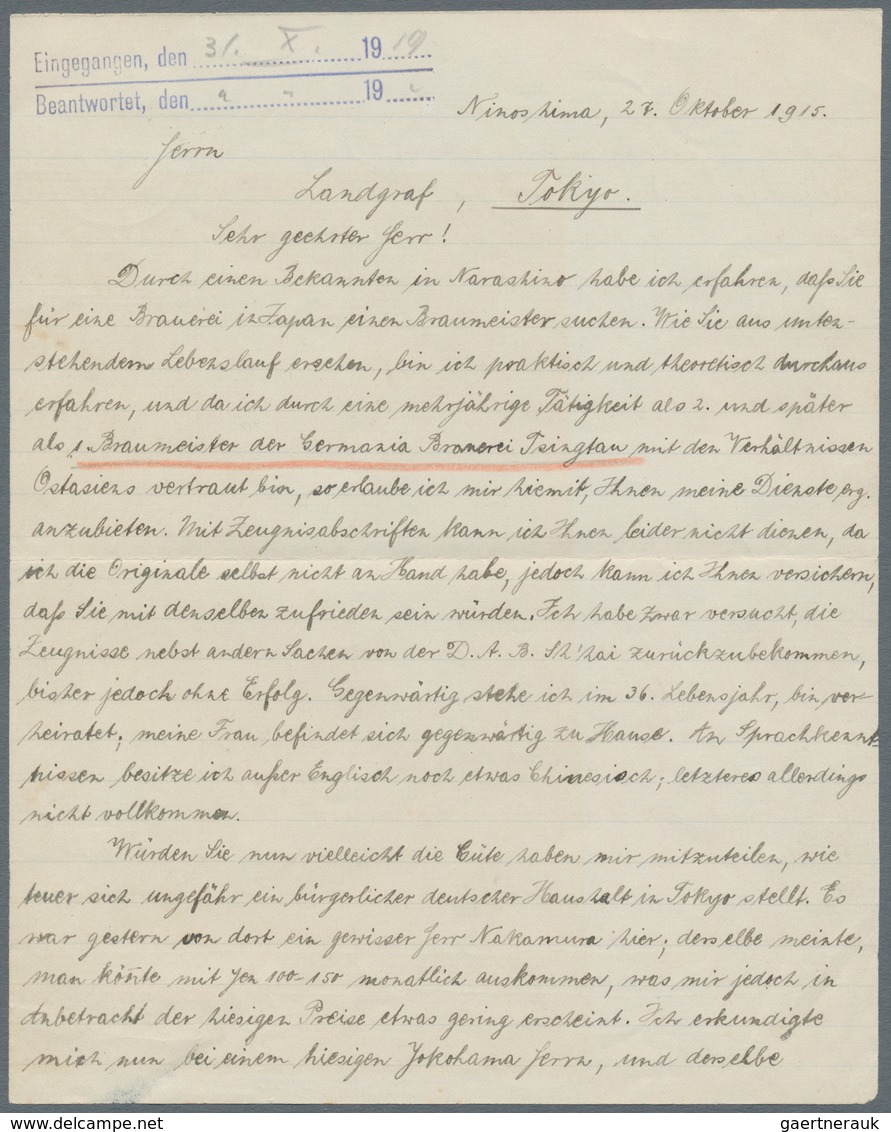 Eingegangen, den 31. X. 1919
Beantwortet, den 19
Ninoshima, 27. Oktober 1915.
Herrn
Landgraf, Tokyo.
Sehr geehrter Herr!
Durch einen Bekannten in Narashino habe ich erfahren, daß Sie
für eine Brauerei in Japan einen Braumeister suchen. Wie Sie aus unten-
stehendem Lebenslauf ersehen, bin ich praktisch und theoretisch durchaus
erfahren, und da ich durch eine mehrjährige Tätigkeit als 2. und später
als 1. Braumeister der Germania Brauerei Tsingtau mit den Verhältnissen
Ostasiens vertraut bin, so erlaube ich mir hiemit, Ihnen meine Dienste erg.
anzubieten. Mit Zeugnisabschriften kann ich Ihnen leider nicht dienen, da
ich die Originale selbst nicht an Hand habe, jedoch kann ich Ihnen versichern,
daß Sie mit denselben zufrieden sein würden. Ich habe zwar versucht, die
Zeugnisse nebst andern Sachen von der D. A. B. Sh'hai zurückzubekommen,
bisher jedoch ohne Erfolg. Gegenwärtig stehe ich im 36. Lebensjahr, bin ver-
heiratet; meine Frau befindet sich gegenwärtig zu Hause. An Sprachkennt-
nissen besitze ich außer Englisch noch etwas Chinesisch; letzteres allerdings
nicht vollkommen.
Würden Sie nun vielleicht die Güte haben mir mitzuteilen, wie
teuer sich ungefähr ein bürgerlicher deutscher Haushalt in Tokyo stellt. Es
war gestern von dort ein gewisser Herr Nakamura hier; derselbe meinte,
man könnte mit Yen 100-150 monatlich auskommen, was mir jedoch in
Anbetracht der hiesigen Preise etwas gering erscheint. Ich erkundigte
mich nun bei einem hiesigen Yokohama Herrn, und derselbe
gaertnerauk